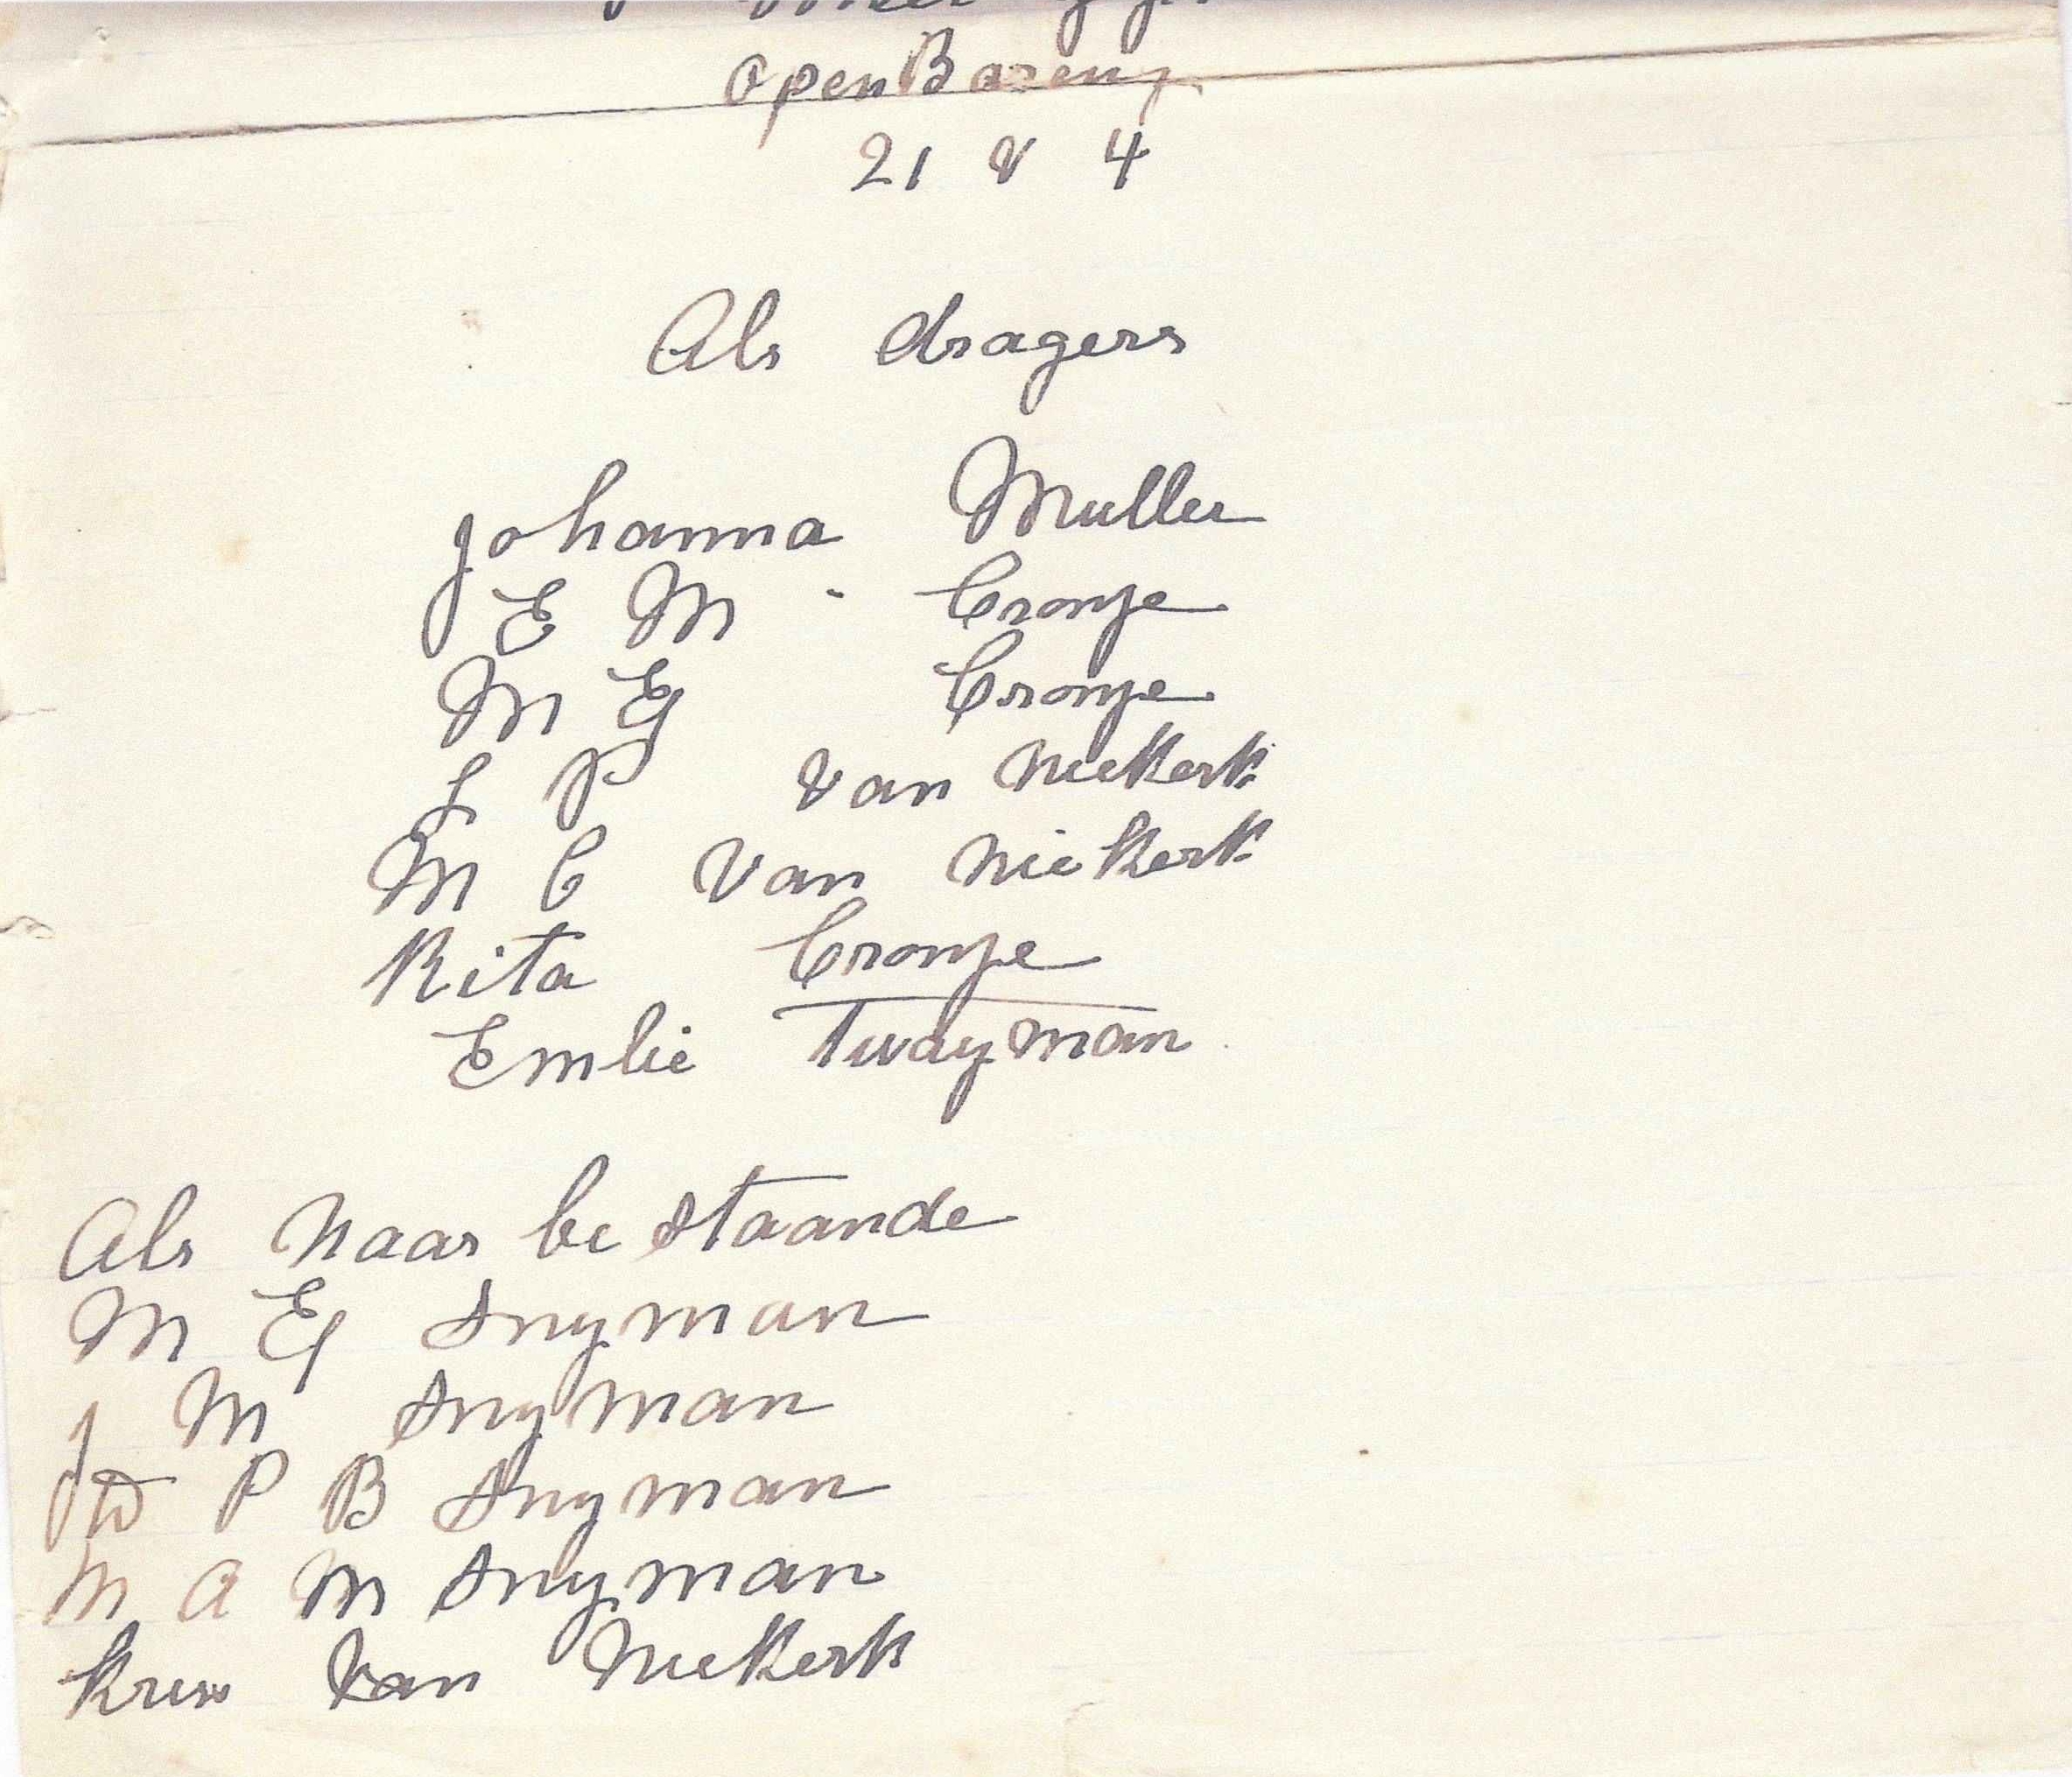 OpenBareng
21 v 4
Als dragers
Johanna Muller
E M - Cronje
M E J Cronje
L P van Niekerk
M C Van Niekerk
Rita Cronje
Emlie Twayman
Als Naar be staande
M E J Snyman
J M Snyman
J W P B Snyman
M A M Snyman
Van Niekerk